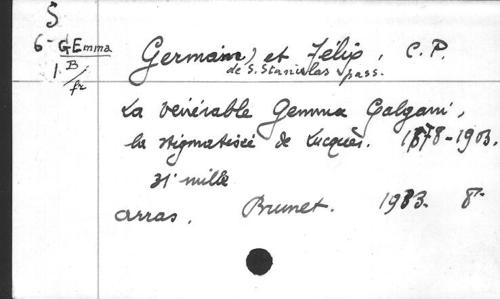 S
6- GEmma
1. B/fr
Germain, et Félix, C.P.
de S. Stanislas pass.
La vénérable Gemma Galgani,
la stigmatisée de Lucques. 1878-1903.
31e mille
Arras, Brunet. 1913. 8°